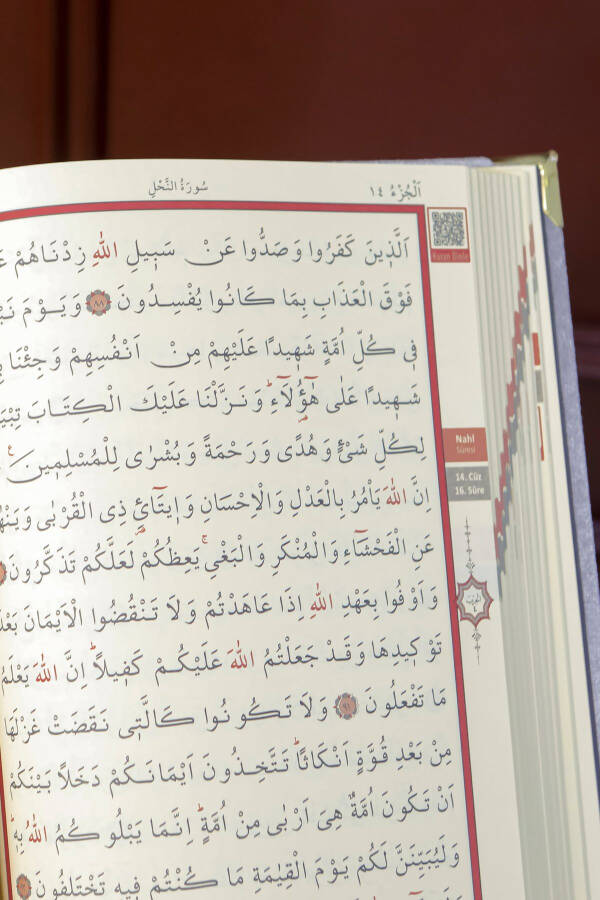 سُورَةُ النَّحْلِ
اَلْجُزْءُ ١٤
اَلَّذٖينَ كَفَرُوا وَصَدُّوا عَنْ سَبٖيلِ اللّٰهِ زِدْنَاهُمْ
فَوْقَ الْعَذَابِ بِمَا كَانُوا يُفْسِدُونَ ﴿٨٨﴾ وَيَوْمَ
فٖى كُلِّ اُمَّةٍ شَهٖيدًا عَلَيْهِمْ مِنْ اَنْفُسِهِمْ وَجِئْنَا
شَهٖيدًا عَلٰى هٰٓؤُلَٓاءِؕ وَنَزَّلْنَا عَلَيْكَ الْكِتَابَ
لِكُلِّ شَیْءٍ وَهُدًى وَرَحْمَةً وَبُشْرٰى لِلْمُسْلِمٖينَ
اِنَّ اللّٰهَ يَاْمُرُ بِالْعَدْلِ وَالْاِحْسَانِ وَاٖيتَٓائِ ذِى الْقُرْبٰى
عَنِ الْفَحْشَٓاءِ وَالْمُنْكَرِ وَالْبَغْىِۚ يَعِظُكُمْ لَعَلَّكُمْ تَذَكَّرُونَ
وَاَوْفُوا بِعَهْدِ اللّٰهِ اِذَا عَاهَدْتُمْ وَلَا تَنْقُضُوا الْاَيْمَانَ
تَوْكٖيدِهَا وَقَدْ جَعَلْتُمُ اللّٰهَ عَلَيْكُمْ كَفٖيلًاؕ اِنَّ اللّٰهَ يَعْلَمُ
مَا تَفْعَلُونَ ﴿٩١﴾ وَلَا تَكُونُوا كَالَّتٖى نَقَضَتْ غَزْلَهَا
مِنْ بَعْدِ قُوَّةٍ اَنْكَاثًاؕ تَتَّخِذُونَ اَيْمَانَكُمْ دَخَلًا بَيْنَكُمْ
اَنْ تَكُونَ اُمَّةٌ هِىَ اَرْبٰى مِنْ اُمَّةٍؕ اِنَّمَا يَبْلُوكُمُ اللّٰهُ بِهٖؕ
وَلَيُبَيِّنَنَّ لَكُمْ يَوْمَ الْقِيٰمَةِ مَا كُنْتُمْ فٖيهِ تَخْتَلِفُونَ
Nahl
Sûresi
14. Cüz
16. Sûre